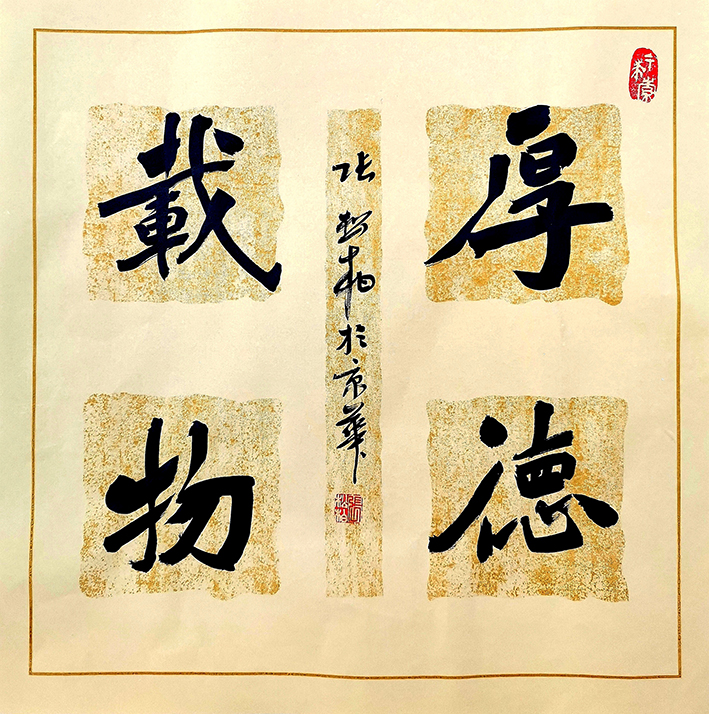 厚德
載物
张松柏於京華